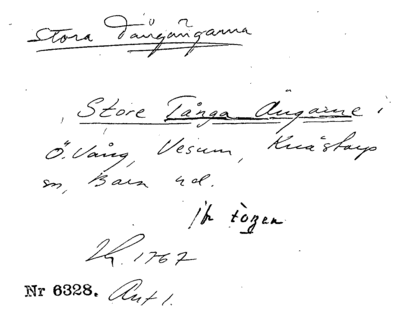 Stora Tångängarna
Store Tånga Ängarne i
Ö. Vång, Vesum, Knästorps
sn, Bara hd.
1767
Nr 6328. Ant 1.